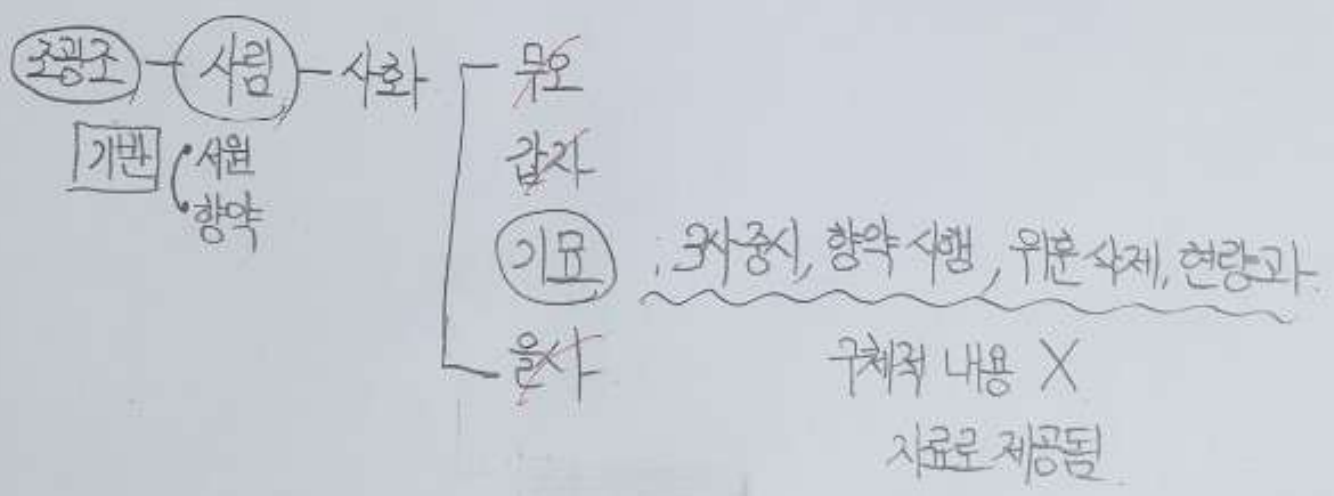 조광조 - 사림 - 사화
무오
갑자
기반 서원
향약
기묘 : 3사 중시, 향약 시행, 위훈 삭제, 현량과
을사
구체적 내용 X
자료로 제공됨